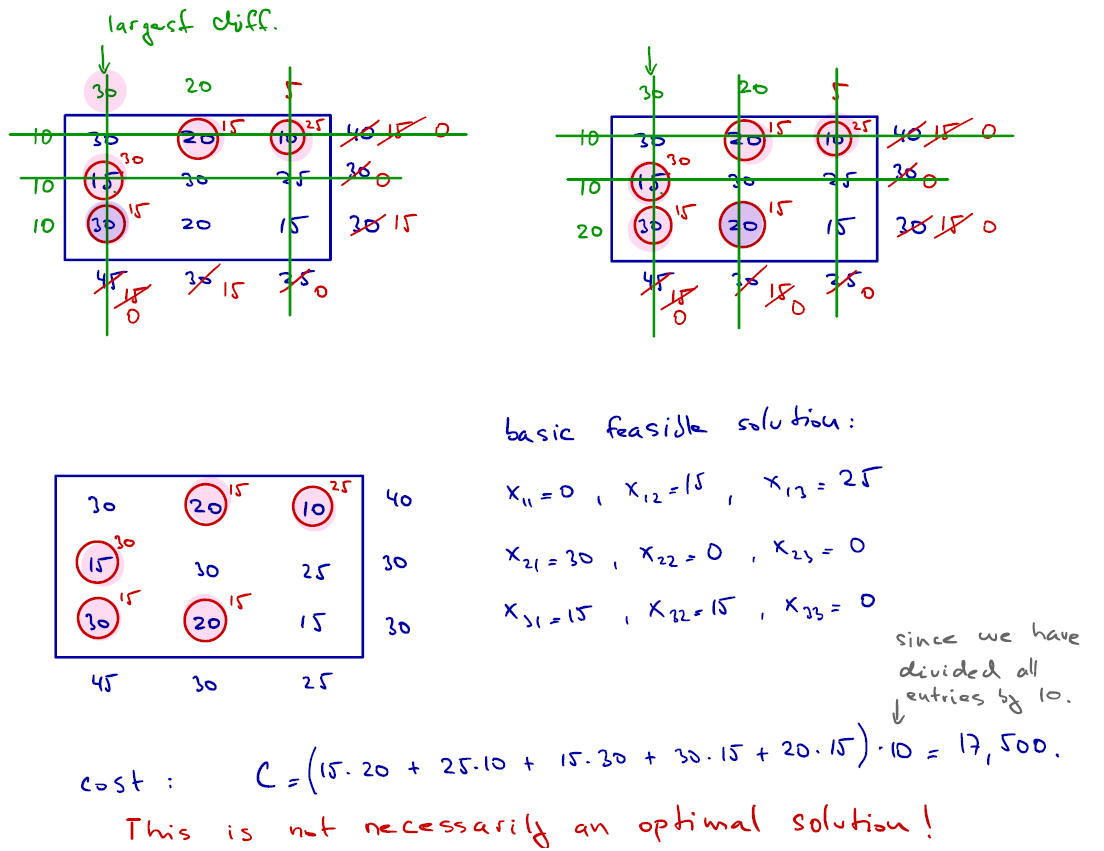 largest diff.
30 20 5
10 30 20 15 10 25 40 15 0
10 15 30 30 25 30 0
10 30 15 20 15 30 15
45 15 0 30 15 25 0
30 20 5
10 30 20 15 10 25 40 15 0
10 15 30 30 25 30 0
20 30 15 20 15 15 30 15 0
45 15 0 30 15 0 25 0
30 20 15 10 25 40
15 30 30 25 30
30 15 20 15 15 30
45 30 25
basic feasible solution:
x₁₁ = 0 , x₁₂ = 15 , x₁₃ = 25
x₂₁ = 30 , x₂₂ = 0 , x₂₃ = 0
x₃₁ = 15 , x₃₂ = 15 , x₃₃ = 0
since we have
divided all
entries by 10.
cost : C = (15·20 + 25·10 + 15·30 + 30·15 + 20·15)·10 = 17,500.
This is not necessarily an optimal solution!